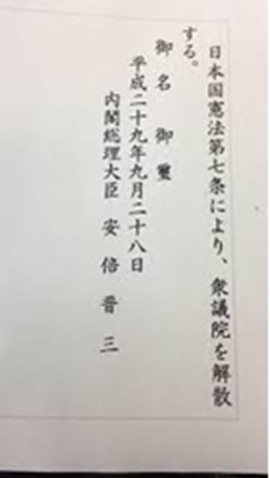 日本国憲法第七条により、衆議院を解散
する。
御名 御璽
平成二十九年九月二十八日
内閣総理大臣 安倍晋三